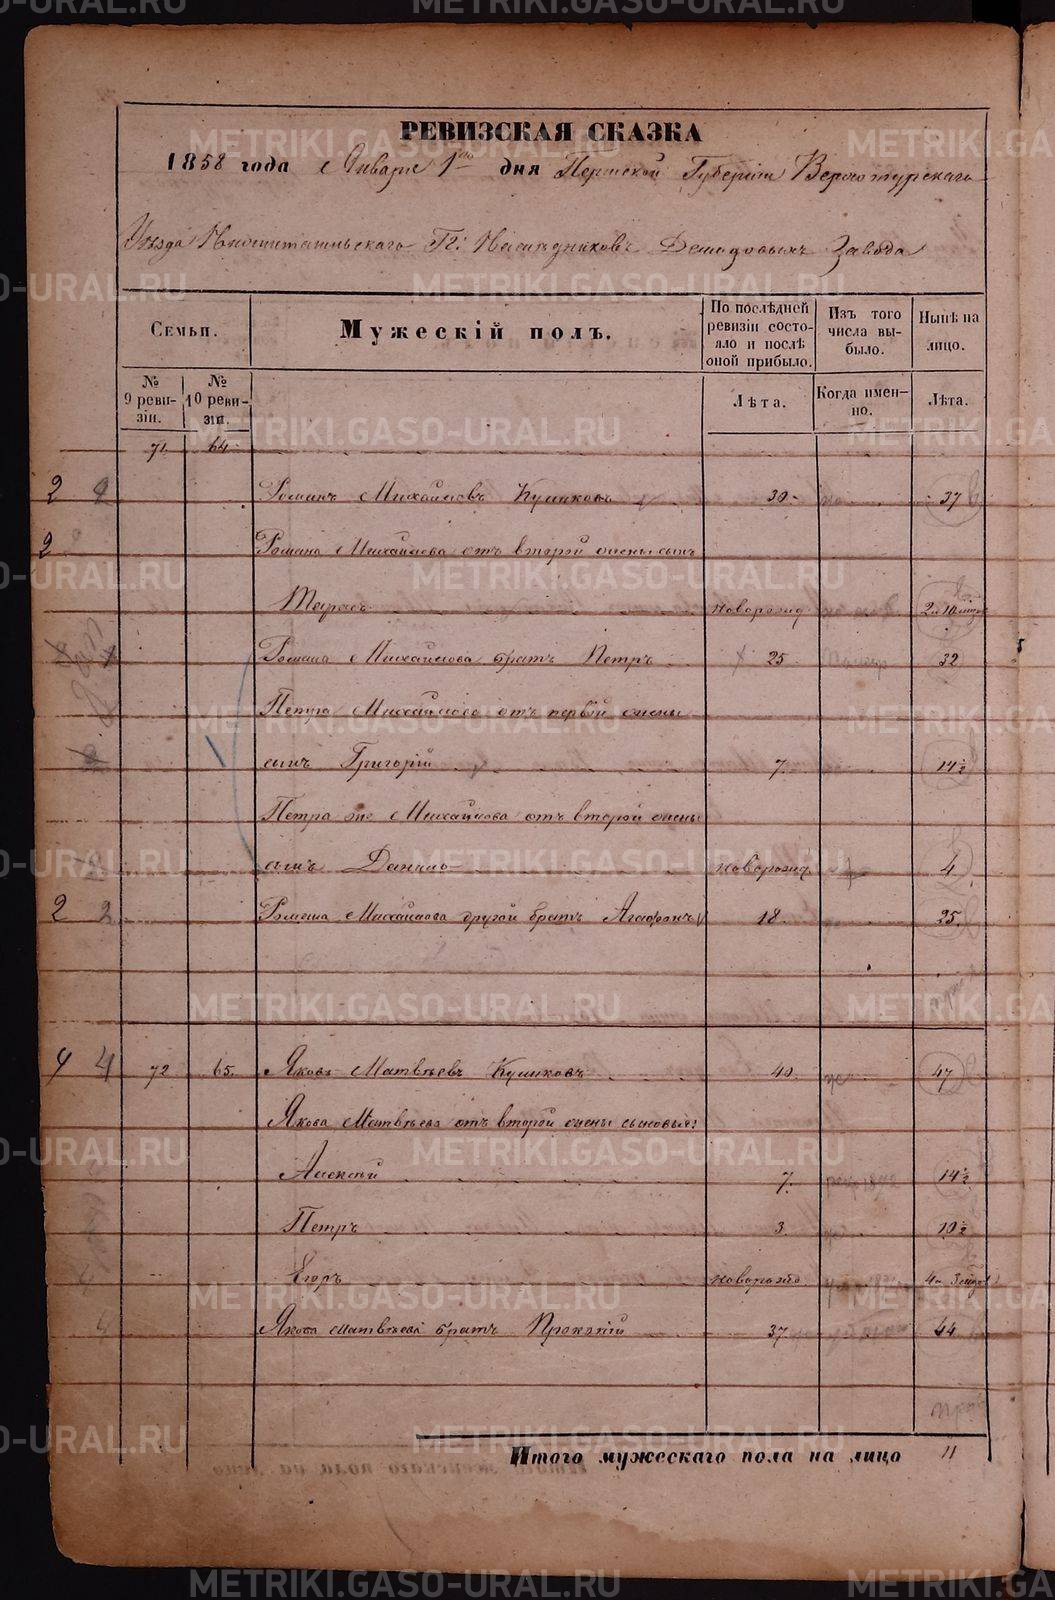 РЕВИЗСКАЯ СКАЗКА
1858 года Января 1го дня Пермской Губернiи Верхотурскаго
Уѣзда Г: Наслѣдниковъ Демидовыхъ Завода
Семьи.
Мужескiй полъ.
По послѣдней ревизiи состояло и послѣ оной прибыло.
Изъ того числа выбыло.
Нынѣ на лицо.
№ 9 ревизiи.
№ 10 ревизiи.
Лѣта.
Когда именно.
Лѣта.
71 64
2 2 Романъ Михайловъ Куликовъ 30 37
2 Романа Михайлова отъ второй жены сынъ
Тарасъ новорожд
Романа Михайлова братъ Петръ 25 32
Петра Михайлова отъ первой жены
сынъ Григорiй 7. 14½
Петра же Михайлова отъ второй жены
сынъ Данило новорожд 4
2 2 Романа Михайлова другой братъ Агафонъ 18 25.
4 4 72 65. Яковъ Матвѣевъ Куликовъ 40 47
Якова Матвѣева отъ второй жены сыновья:
Алексѣй 7. 14½
Петръ 3 10½
Егоръ новорожд
Якова Матвѣева братъ Прокопiй 37 44
Итого мужескаго пола на лицо 11
METRIKI.GASO-URAL.RU